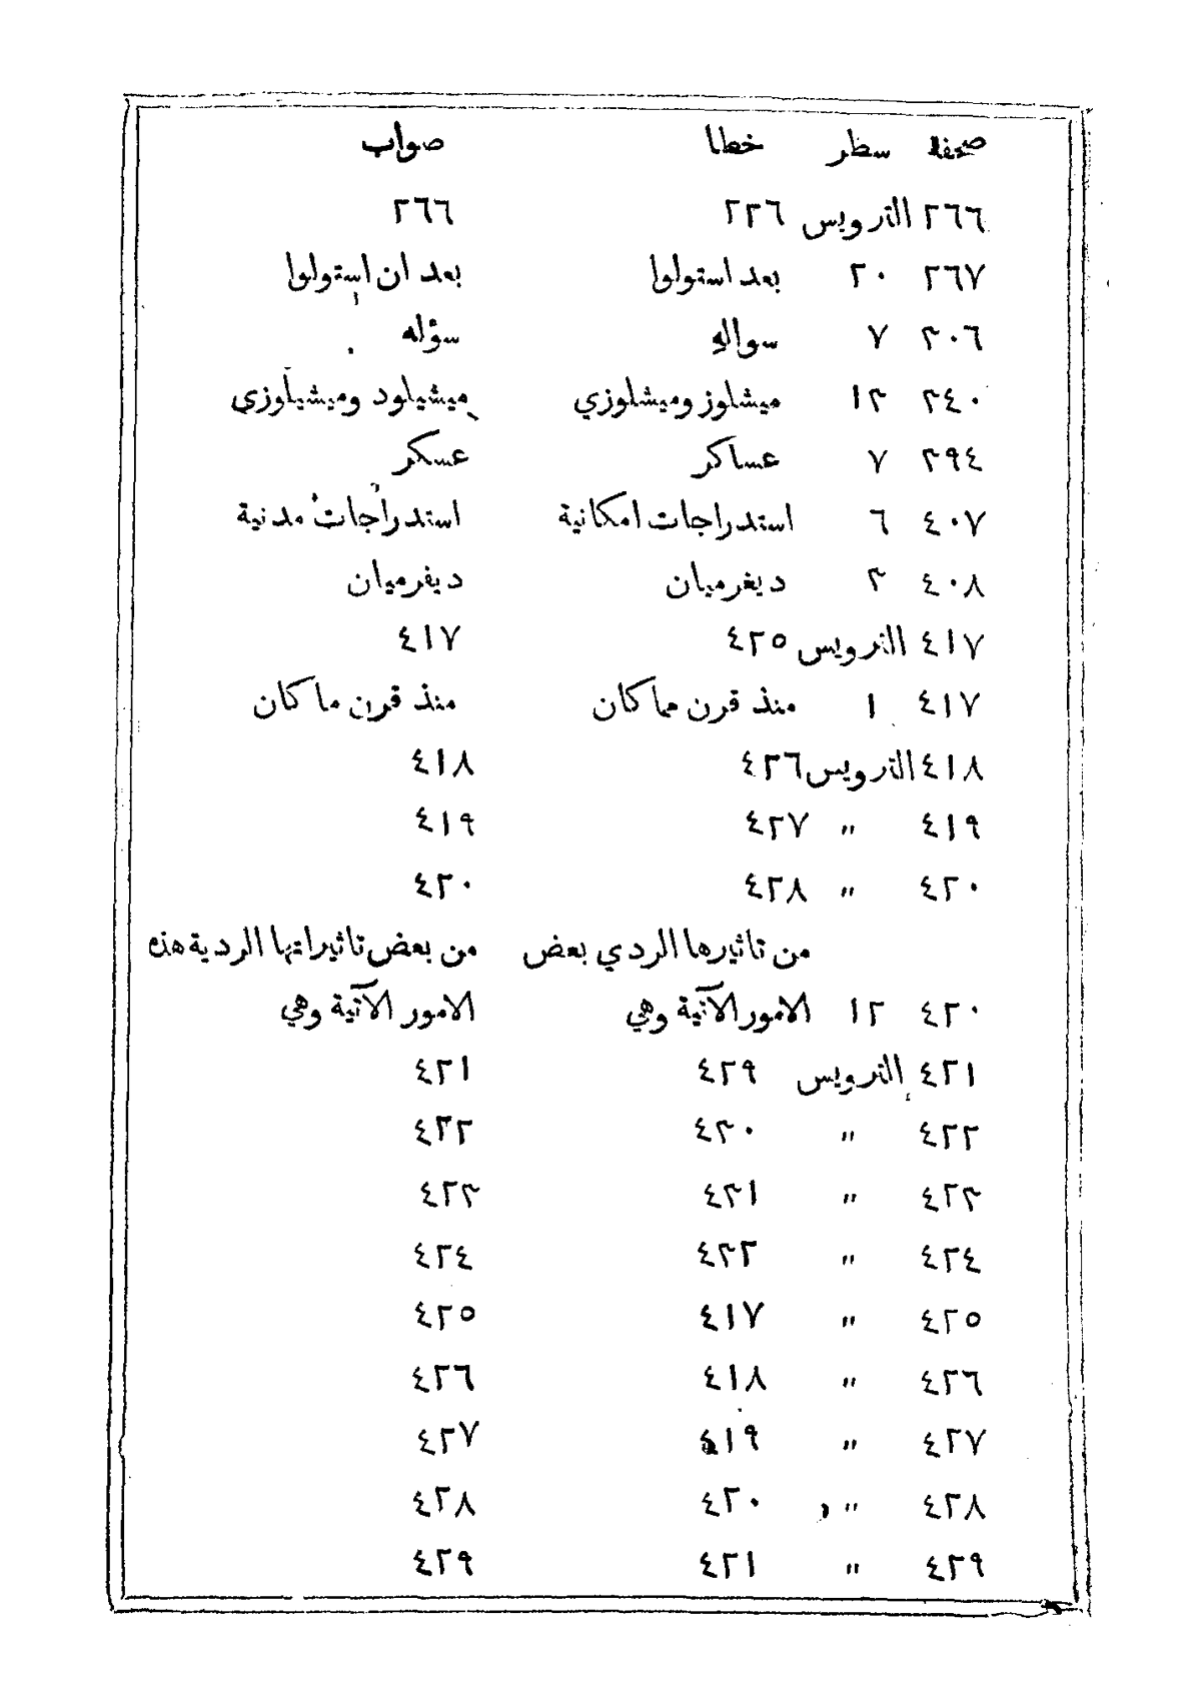 صحفة سطر خطا صواب
٢٦٦ الترويس ٢٢٦ ٢٦٦
٢٦٧ ٢٠ بعد استولوا بعد ان استولوا
٣٠٦ ٧ سواله سؤله
٣٤٠ ١٣ ميشلوز وميشلوزي ميشيلود وميشيلوزي
٣٩٤ ٧ عساكر عسكر
٤٠٧ ٦ استدراجات امكانية استدراجات مدنية
٤٠٨ ٣ ديغرميان ديفرميان
٤١٧ الترويس ٤٢٥ ٤١٧
٤١٧ ١ منذ قرن مماكان منذ قرن ماكان
٤١٨ الترويس ٤٢٦ ٤١٨
٤١٩ " ٤٢٧ ٤١٩
٤٢٠ " ٤٢٨ ٤٢٠
من تاثيرها الردي بعض من بعض تاثيراتها الردية هذه
٤٢٠ ١٢ الامور الآتية وهي الامور الآتية وهي
٤٢١ الترويس ٤٢٩ ٤٢١
٤٢٢ " ٤٣٠ ٤٢٢
٤٢٣ " ٤٣١ ٤٢٣
٤٢٤ " ٤٣٢ ٤٢٤
٤٢٥ " ٤١٧ ٤٢٥
٤٢٦ " ٤١٨ ٤٢٦
٤٢٧ " ٤١٩ ٤٢٧
٤٢٨ " ٤٢٠ ٤٢٨
٤٢٩ " ٤٢١ ٤٢٩